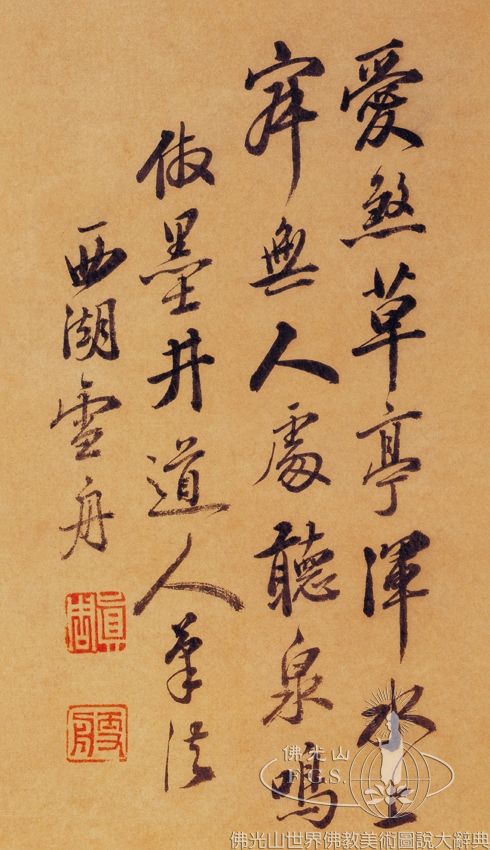 愛煞草亭渾水上
寂無人處聽泉鳴
倣墨井道人筆法
西湖雪舟
佛光山
F.G.S.
佛光山世界佛教美術圖說大辭典